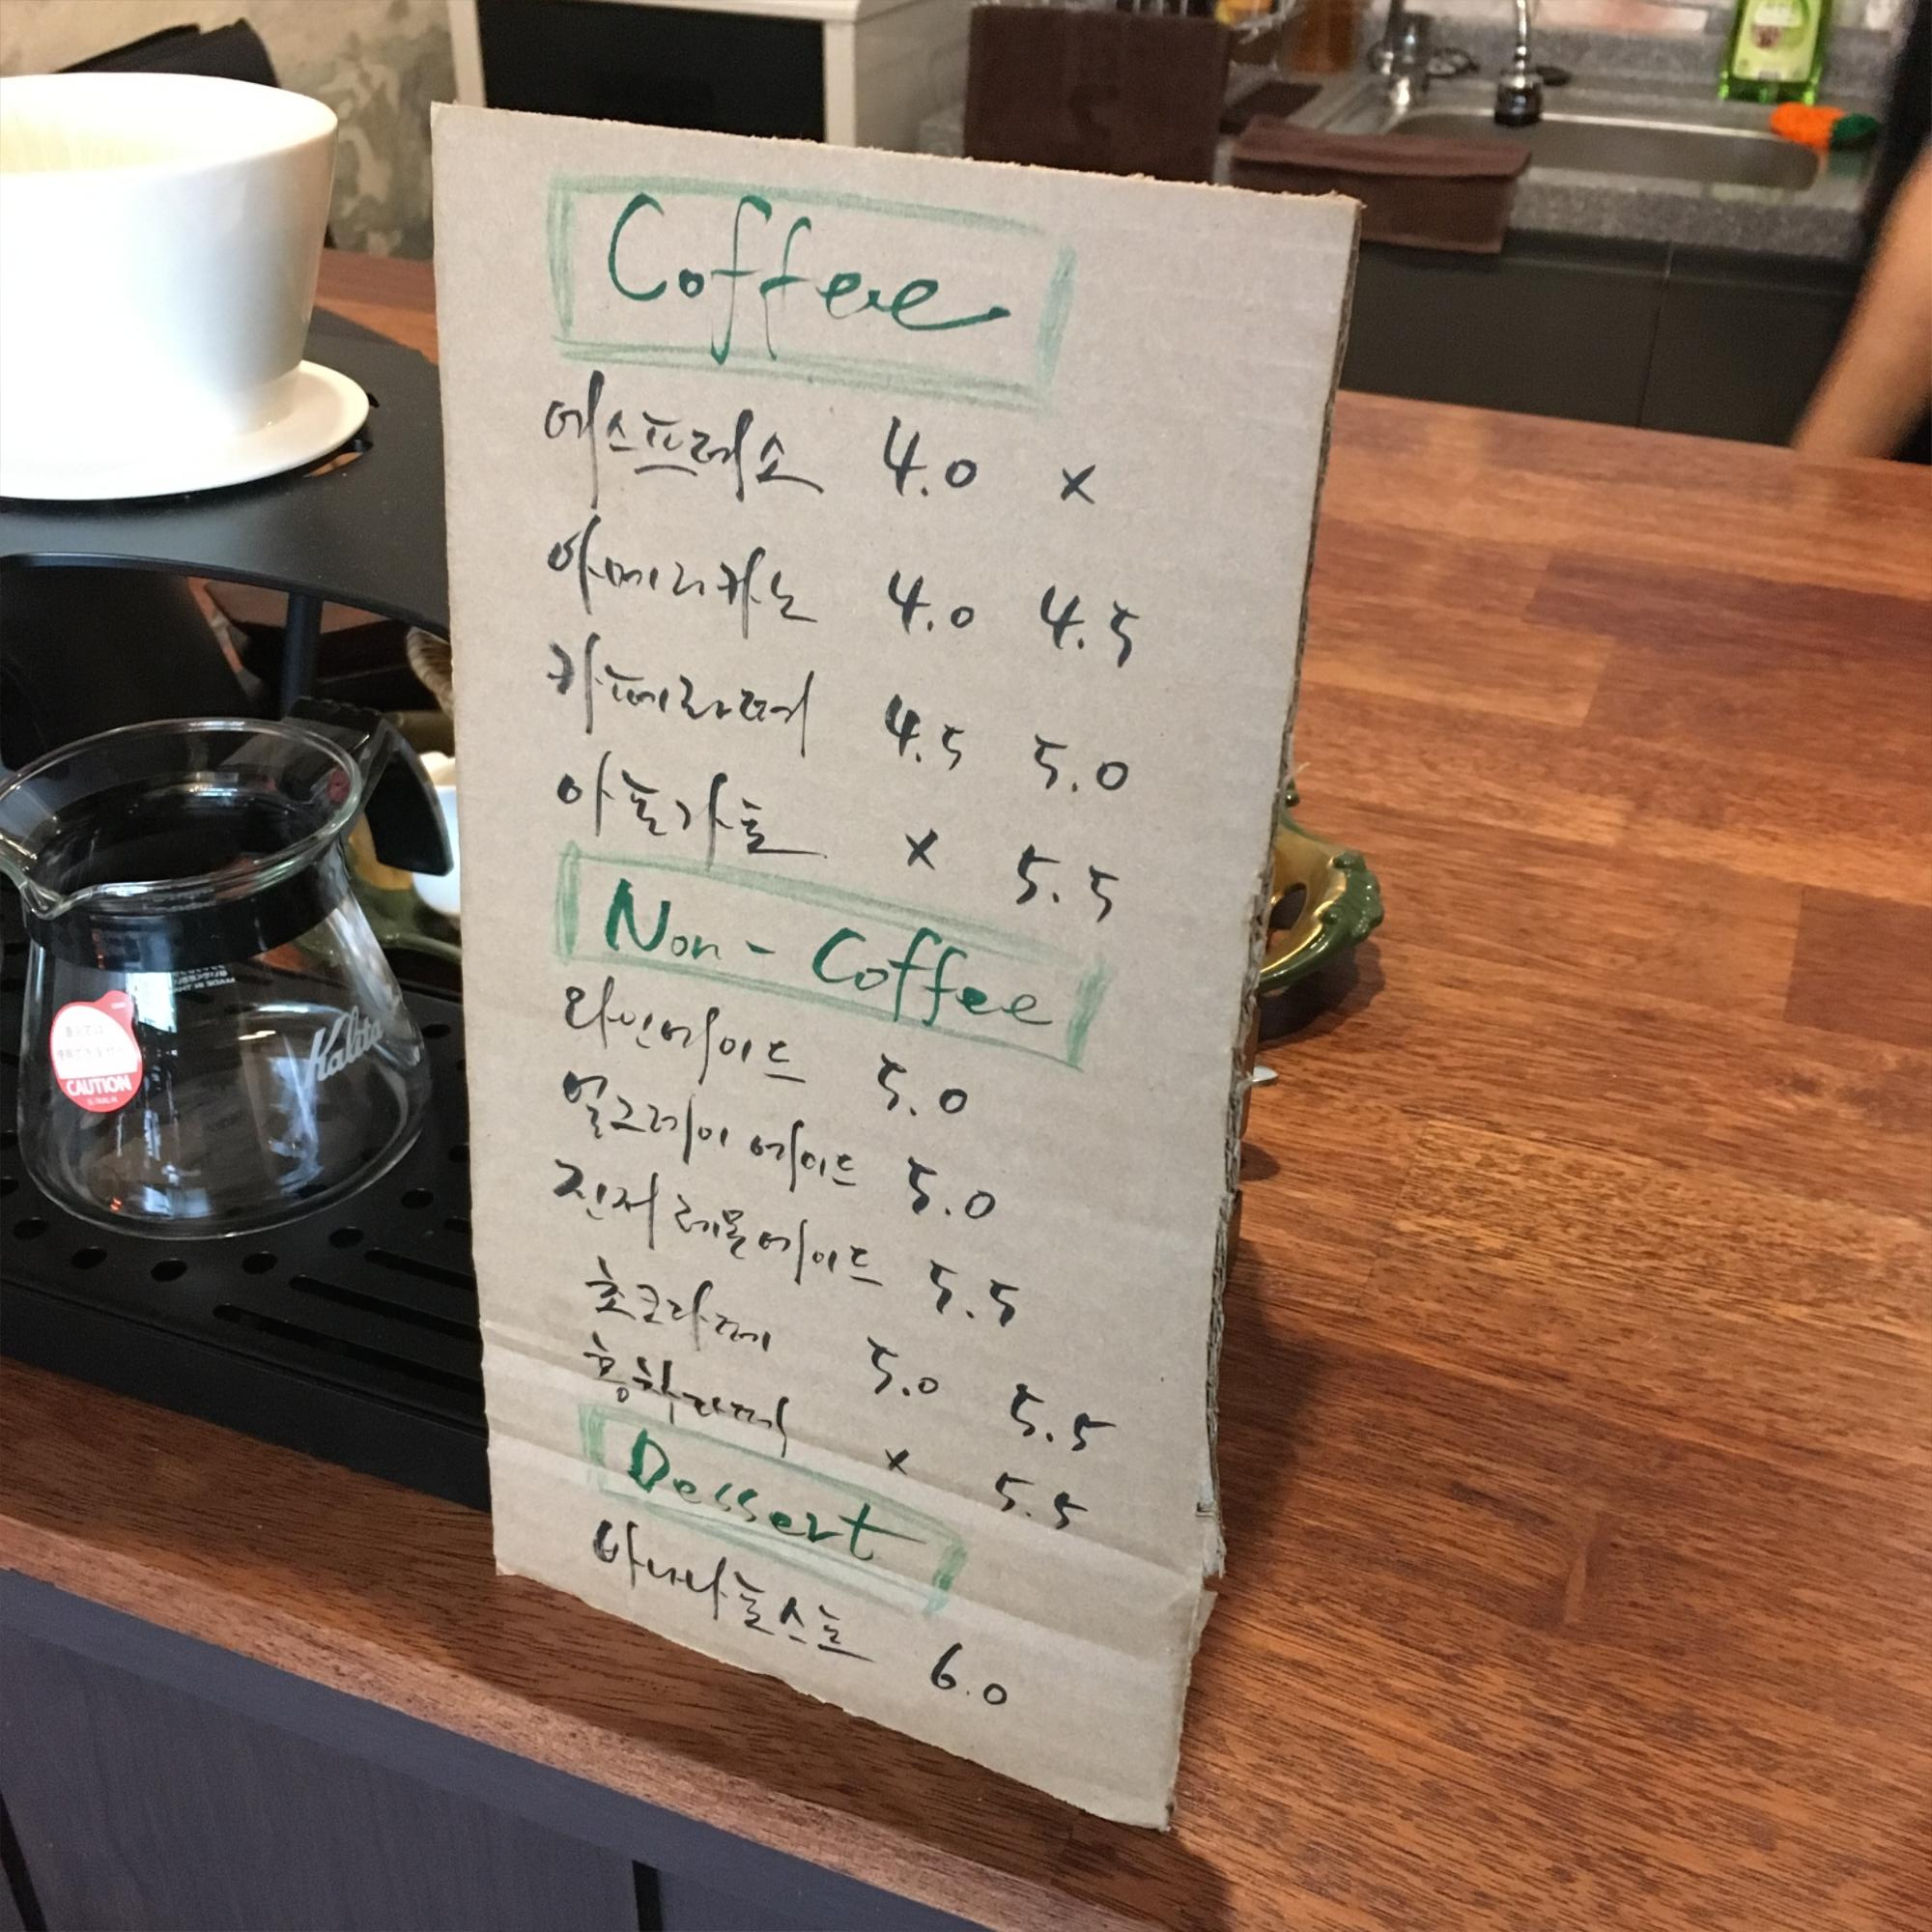 Coffee
에스프레소 4.0 x
아메리카노 4.0 4.5
카페라떼 4.5 5.0
아포가토 x 5.5
Non-Coffee
와인에이드 5.0
얼그레이 에이드 5.0
진저레몬에이드 5.5
초코라떼 5.0 5.5
홍차라떼 x 5.5
Dessert
바나나토스트 6.0
Kalita
CAUTION